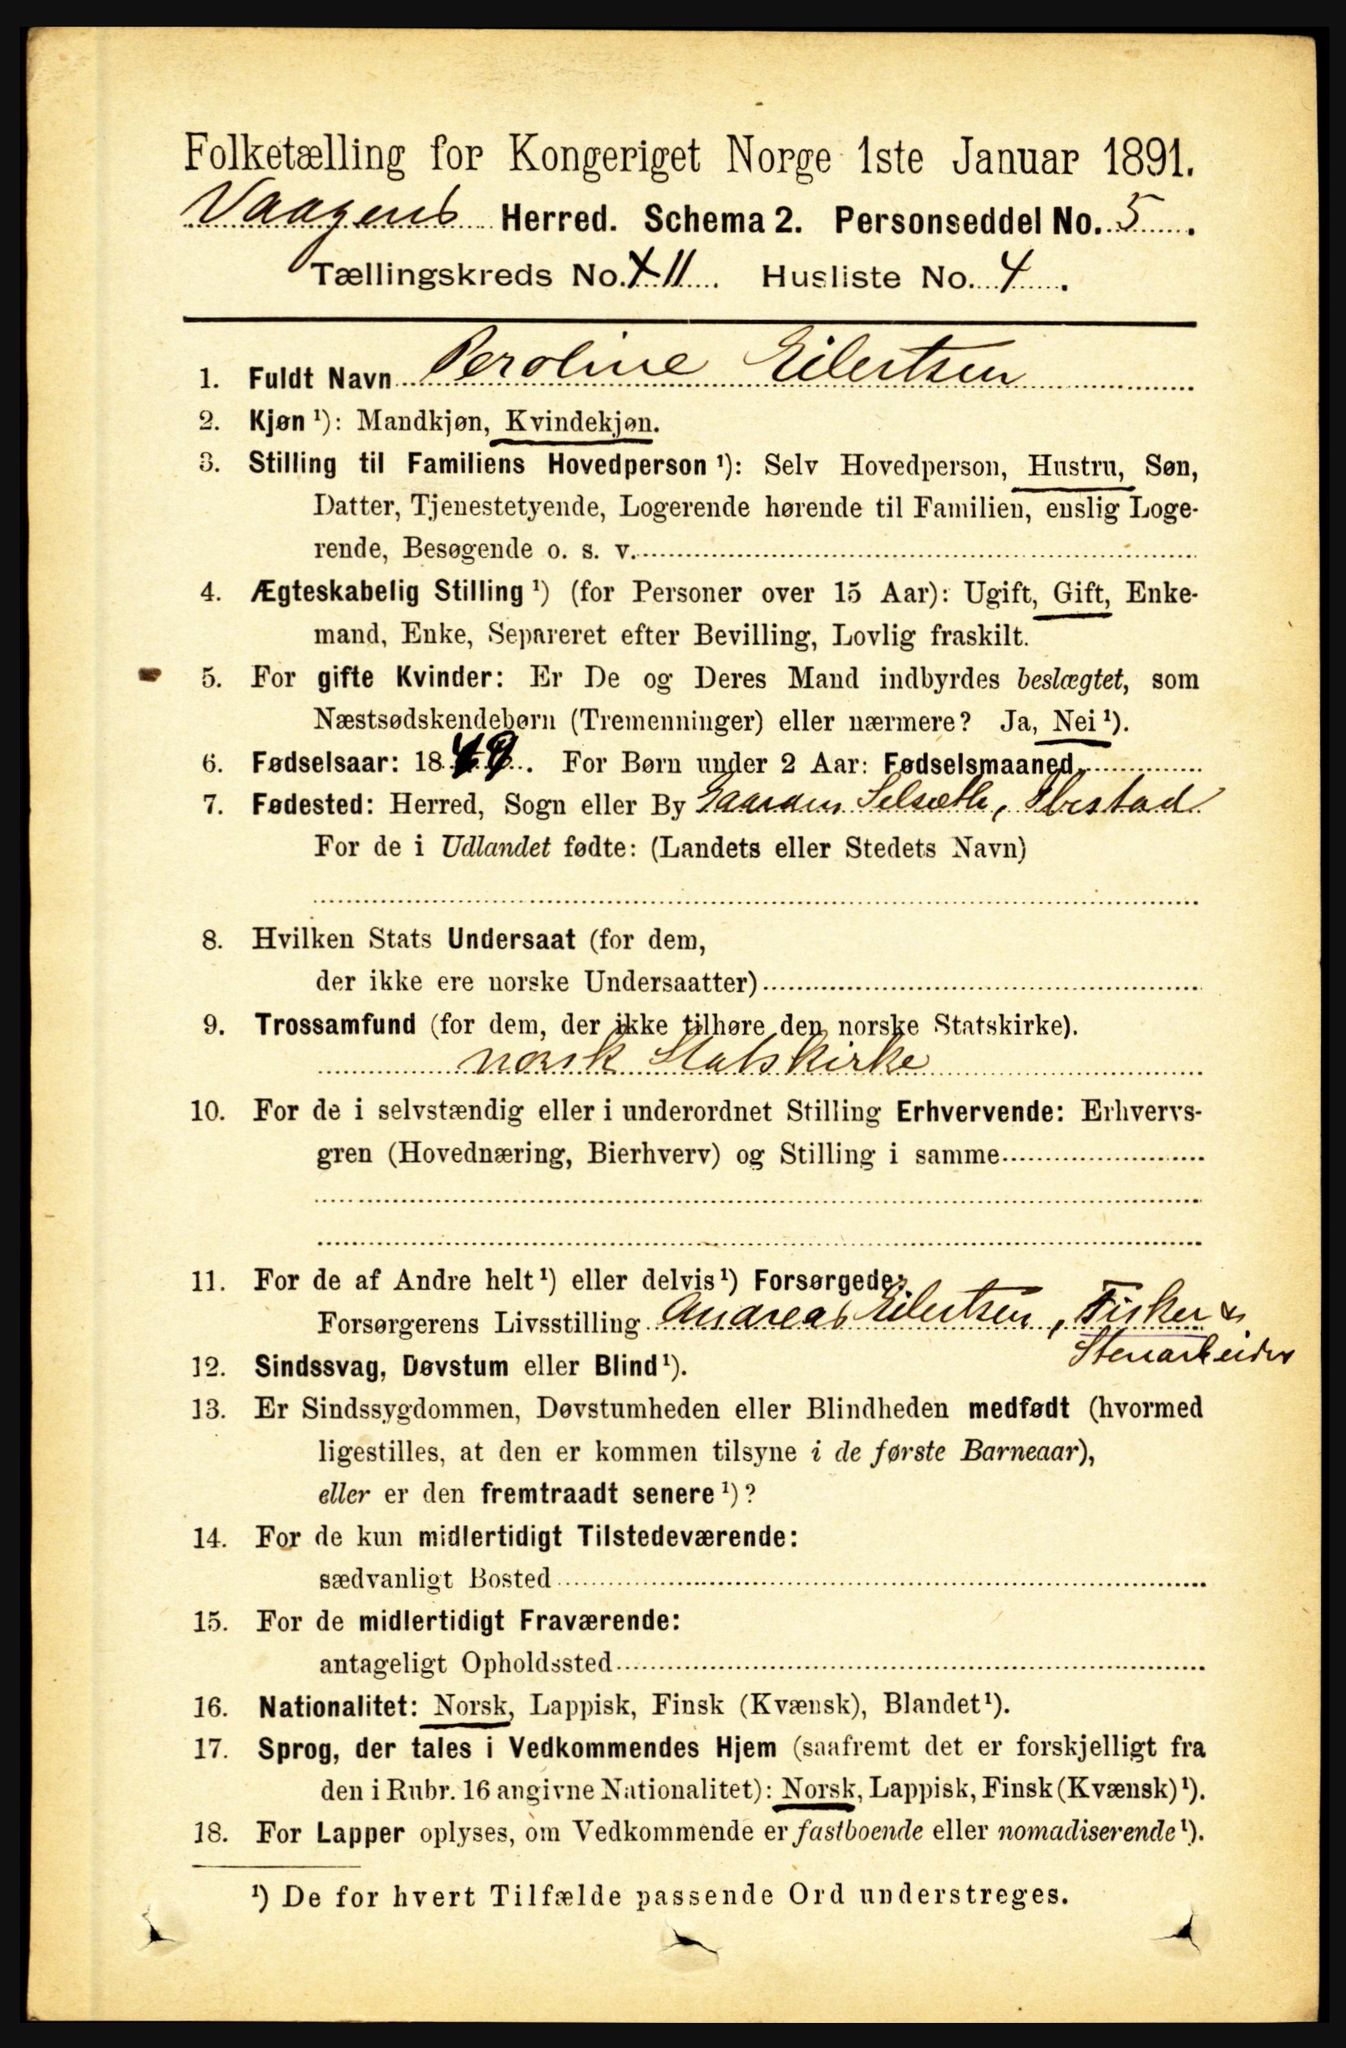 Folketælling for Kongeriget Norge 1ste Januar 1891.
Vaagens Herred. Schema 2. Personseddel No. 5.
Tællingskreds No. 11. Husliste No. 4.
1. Fuldt Navn Peroline Eilertsen
2. Kjøn ¹): Mandkjøn, Kvindekjøn.
3. Stilling til Familiens Hovedperson ¹): Selv Hovedperson, Hustru, Søn,
Datter, Tjenestetyende, Logerende hørende til Familien, enslig Loge-
rende, Besøgende o. s. v.
4. Ægteskabelig Stilling ¹) (for Personer over 15 Aar): Ugift, Gift, Enke-
mand, Enke, Separeret efter Bevilling, Lovlig fraskilt.
5. For gifte Kvinder: Er De og Deres Mand indbyrdes beslægtet, som
Næstsødskendebørn (Tremenninger) eller nærmere? Ja, Nei ¹).
6. Fødselsaar: 1849. For Børn under 2 Aar: Fødselsmaaned
7. Fødested: Herred, Sogn eller By Gaarden Selsæth, Ibestad
For de i Udlandet fødte: (Landets eller Stedets Navn)
8. Hvilken Stats Undersaat (for dem,
der ikke ere norske Undersaatter)
9. Trossamfund (for dem, der ikke tilhøre den norske Statskirke).
norsk Statskirke
10. For de i selvstændig eller i underordnet Stilling Erhvervende: Erhvervs-
gren (Hovednæring, Bierhverv) og Stilling i samme
11. For de af Andre helt ¹) eller delvis ¹) Forsørgede:
Forsørgerens Livsstilling Andreas Eilertsen, Fisker &
Stenarbeider
12. Sindssvag, Døvstum eller Blind ¹).
13. Er Sindssygdommen, Døvstumheden eller Blindheden medfødt (hvormed
ligestilles, at den er kommen tilsyne i de første Barneaar),
eller er den fremtraadt senere ¹)?
14. For de kun midlertidigt Tilstedeværende:
sædvanligt Bosted
15. For de midlertidigt Fraværende:
antageligt Opholdssted
16. Nationalitet: Norsk, Lappisk, Finsk (Kvænsk), Blandet ¹).
17. Sprog, der tales i Vedkommendes Hjem (saafremt det er forskjelligt fra
den i Rubr. 16 angivne Nationalitet): Norsk, Lappisk, Finsk (Kvænsk) ¹).
18. For Lapper oplyses, om Vedkommende er fastboende eller nomadiserende ¹).
¹) De for hvert Tilfælde passende Ord understreges.